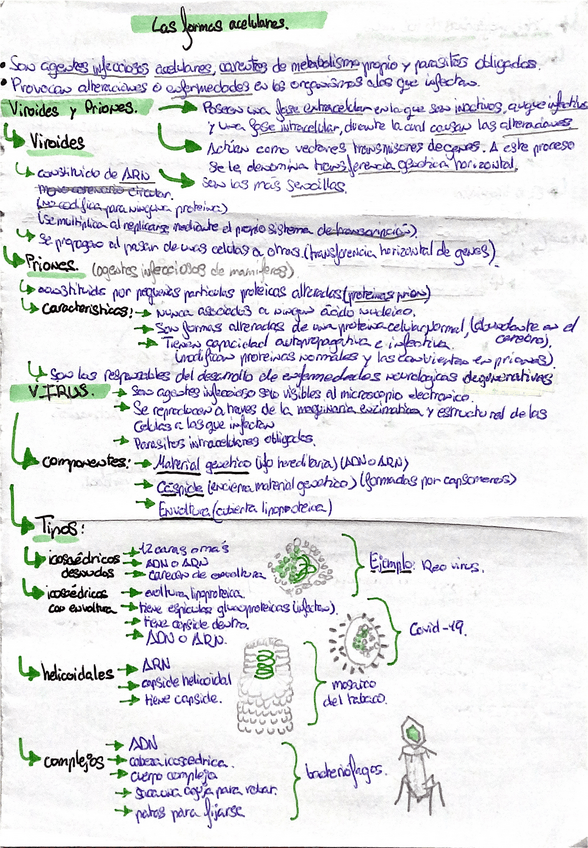 Las formas acelulares.
• Son agentes infecciosos acelulares, carentes de metabolismo propio y parasitos obligados.
• Provocan alteraciones o enfermedades en los organismos a los que infectan.
Viroides y Priones.
→ Poseen una fase extracelular en la que son inactivos, aunque infectivos
y una fase intracelular, durante la cual causan las alteraciones
→ Actúan como vectores transmisores de genes. A este proceso
se le denomina transferencia genética horizontal.
→ Son las más sencillas.
Viroides
→ constituido de ARN
monocatenario circular.
(No codifica para ninguna proteína)
(se multiplica al replicarse mediante el propio sistema de transcripción)
→ Se propagan al pasar de unas celulas a otras. (transferencia horizontal de genes).
Priones. (agentes infecciosos de mamíferos)
→ constituidos por pequeñas partículas proteicas alteradas (proteinas prion)
→ Caracteristicas: → Nunca asociados a ningun ácido nucleico.
→ Son formas alteradas de una proteina celular normal, (abundante en el
cerebro).
→ Tienen capacidad autopropagativa e infectiva.
(modifican proteinas normales y las convierten en priones).
→ Son las responsables del desarrollo de enfermedades neurologicas degenerativas
VIRUS.
→ Son agentes infeccioso solo visibles al microscopio electronico.
→ Se reproducen a traves de la maquinaria enzimatica y estructural de las
celulas a las que infectan
→ Parasitos intracelulares obligados.
→ componentes: → Material genetico (info hereditaria) (ADN o ARN)
→ Cáspide (encierra material genetico) (formadas por capsomeros)
→ Envoltura (cubierta lipoproteica)
→ Tipos:
→ icosaédricos desnudos
→ +2 caras o más
→ ADN o ARN
→ carecen de envoltura
Ejemplo: Reovirus.
→ icosaédricos con envoltura
→ evoltura lipoproteica.
→ tiene espiculas glucoproteicas (infectan).
→ tiene capside dentro.
→ ADN o ARN.
Covid-19.
→ helicoidales
→ ARN
→ capside helicoidal
→ tiene capside.
mosaico
del tabaco.
→ complejos
→ ADN
→ cabeza icosaedrica.
→ cuerpo complejo
→ saca una aguja para robar.
→ patas para fijarse
bacteriófagos.